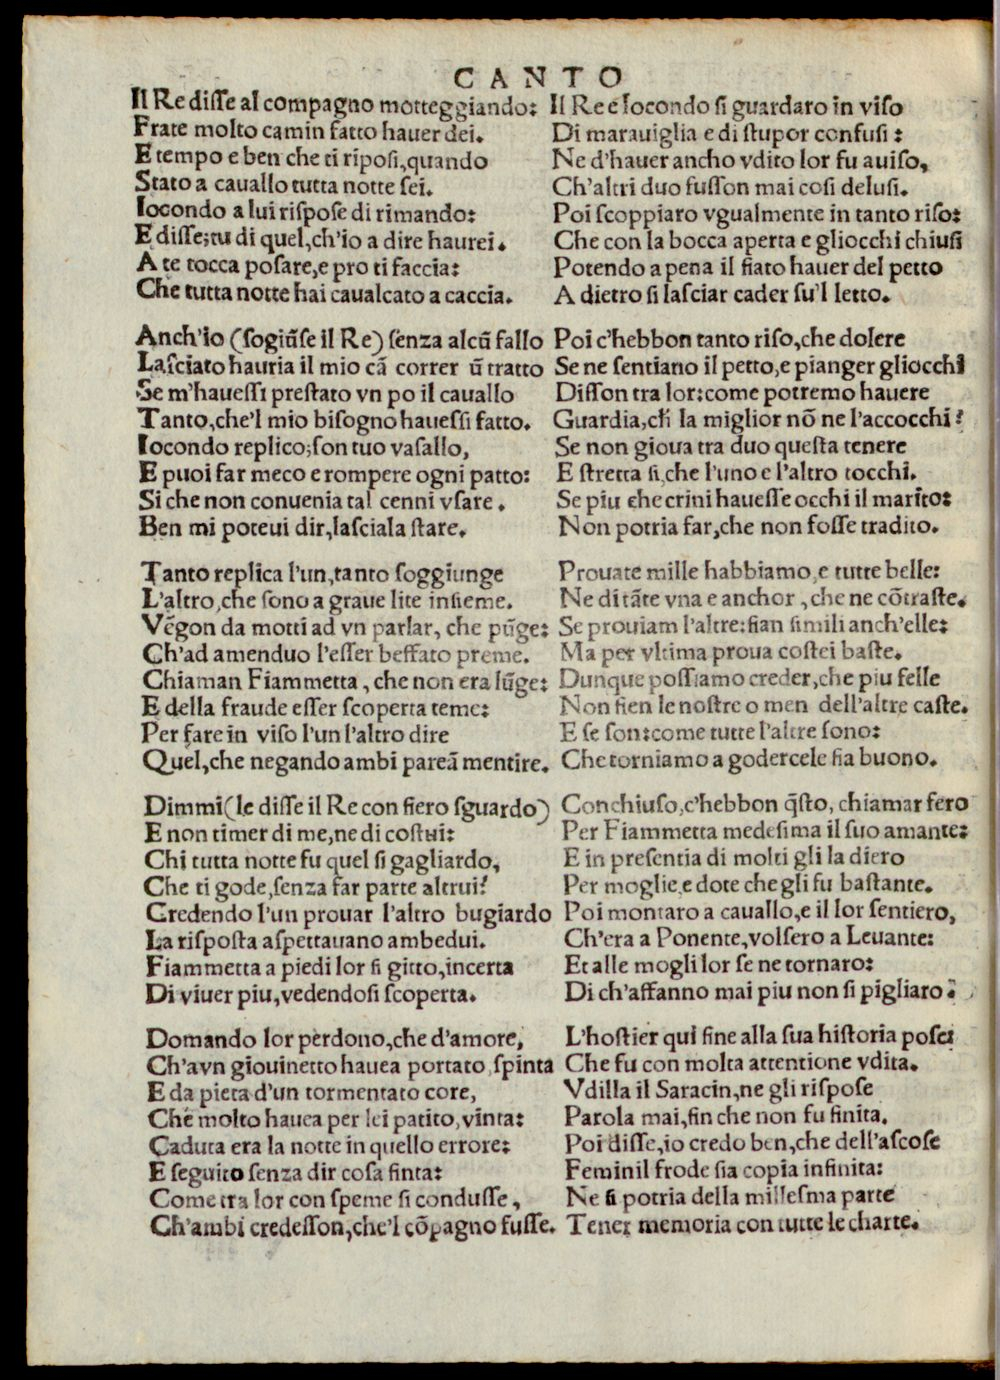 CANTO
Il Re disse al compagno motteggiando:
Frate molto camin fatto hauer dei.
E tempo e ben che ti riposi, quando
Stato a cauallo tutta notte sei.
Iocondo a lui rispose di rimando:
E disse; tu di quel, ch'io a dire haurei.
A te tocca posare, e pro ti faccia:
Che tutta notte hai caualcato a caccia.
Anch'io (sogiũse il Re) senza alcũ fallo
Lasciato hauria il mio cã correr ũ tratto
Se m'hauessi prestato vn po il cauallo
Tanto, che'l mio bisogno hauessi fatto.
Iocondo replico; son tuo vasallo,
E puoi far meco e rompere ogni patto:
Si che non conuenia tal cenni vsare.
Ben mi poteui dir, lasciala stare.
Tanto replica l'un, tanto soggiunge
L'altro, che sono a graue lite insieme.
Vẽgon da motti ad vn parlar, che pũge:
Ch'ad amenduo l'esser beffato preme.
Chiaman Fiammetta, che non era lũge:
E della fraude esser scoperta teme:
Per fare in viso l'un l'altro dire
Quel, che negando ambi pareã mentire.
Dimmi (le disse il Re con fiero sguardo)
E non timer di me, ne di costui:
Chi tutta notte fu quel si gagliardo,
Che ti gode, senza far parte altrui?
Credendo l'un prouar l'altro bugiardo
La risposta aspettauano ambedui.
Fiammetta a piedi lor si gitto, incerta
Di viuer piu, vedendosi scoperta.
Domando lor perdono, che d'amore,
Ch'a vn giouinetto hauea portato, spinta
E da pieta d'un tormentato core,
Che molto hauea per lei patito, vinta:
Caduta era la notte in quello errore:
E seguito senza dir cosa finta:
Come tra lor con speme si condusse,
Ch'ambi credesson, che'l cõpagno fusse.
Il Re e Iocondo si guardaro in viso
Di marauiglia e di stupor confusi:
Ne d'hauer ancho vdito lor fu auiso,
Ch'altri duo fusson mai cosi delusi.
Poi scoppiaro vgualmente in tanto riso:
Che con la bocca aperta e gliocchi chiusi
Potendo a pena il fiato hauer del petto
A dietro si lasciar cader su'l letto.
Poi c'hebbon tanto riso, che dolere
Se ne sentiano il petto, e pianger gliocchi
Disson tra lor: come potremo hauere
Guardia, ch̃ la miglior nõ ne l'accocchi?
Se non gioua tra duo questa tenere
E stretta si, che l'uno e l'altro tocchi.
Se piu che crini hauesse occhi il marito:
Non potria far, che non fosse tradito.
Prouate mille habbiamo, e tutte belle:
Ne di tãte vna e anchor, che ne cõtraste.
Se prouiam l'altre: fian simili anch'elle:
Ma per vltima proua costei baste.
Dunque possiamo creder, che piu felle
Non sien le nostre o men dell'altre caste.
E se son: come tutte l'altre sono:
Che torniamo a godercele fia buono.
Conchiuso, c'hebbon q̃sto, chiamar fero
Per Fiammetta medesima il suo amante:
E in presentia di molti gli la diero
Per moglie, e dote che gli fu bastante.
Poi montaro a cauallo, e il lor sentiero,
Ch'era a Ponente, volsero a Leuante:
Et alle mogli lor se ne tornaro:
Di ch'affanno mai piu non si pigliaro.
L'hostier qui fine alla sua historia pose;
Che fu con molta attentione vdita.
Vdilla il Saracin, ne gli rispose
Parola mai, fin che non fu finita.
Poi disse, io credo ben, che dell'ascose
Feminil frode sia copia infinita:
Ne si potria della millesma parte
Tener memoria con tutte le charte.